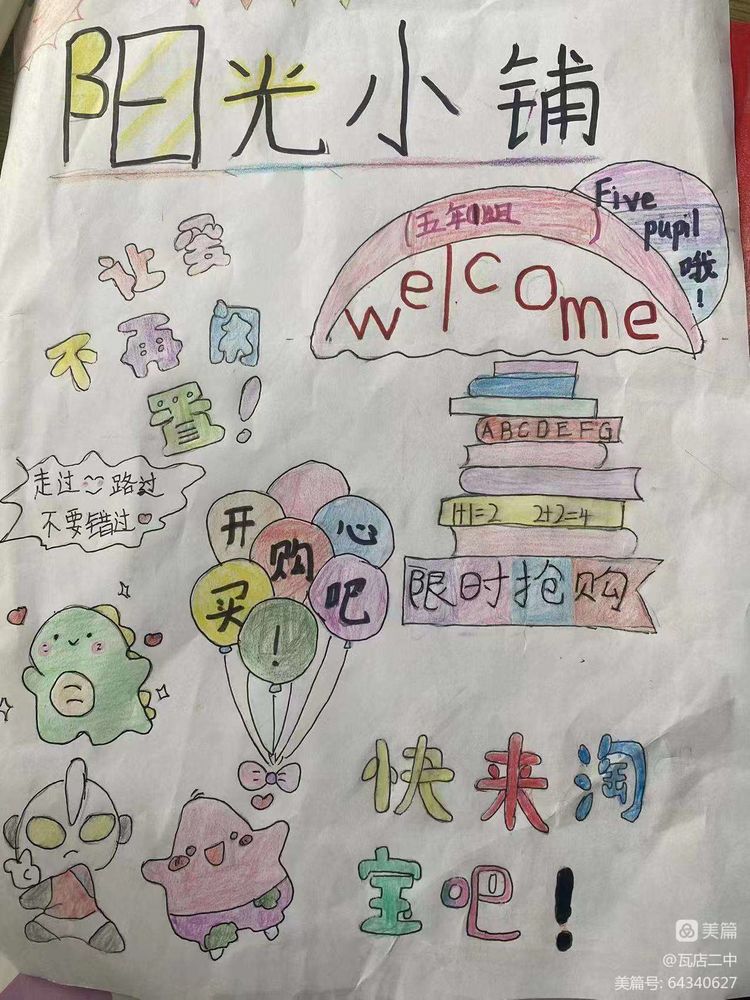 阳光小铺
(五年1组)
Five
pupil
哦
!
welcome
让爱
不再闲
置!
ABCDEFG
1+1=2 2+2=4
限时抢购
走过路过
不要错过
开心
购
买吧
!
快来淘
宝吧!
美篇
@瓦店二中
美篇号: 64340627